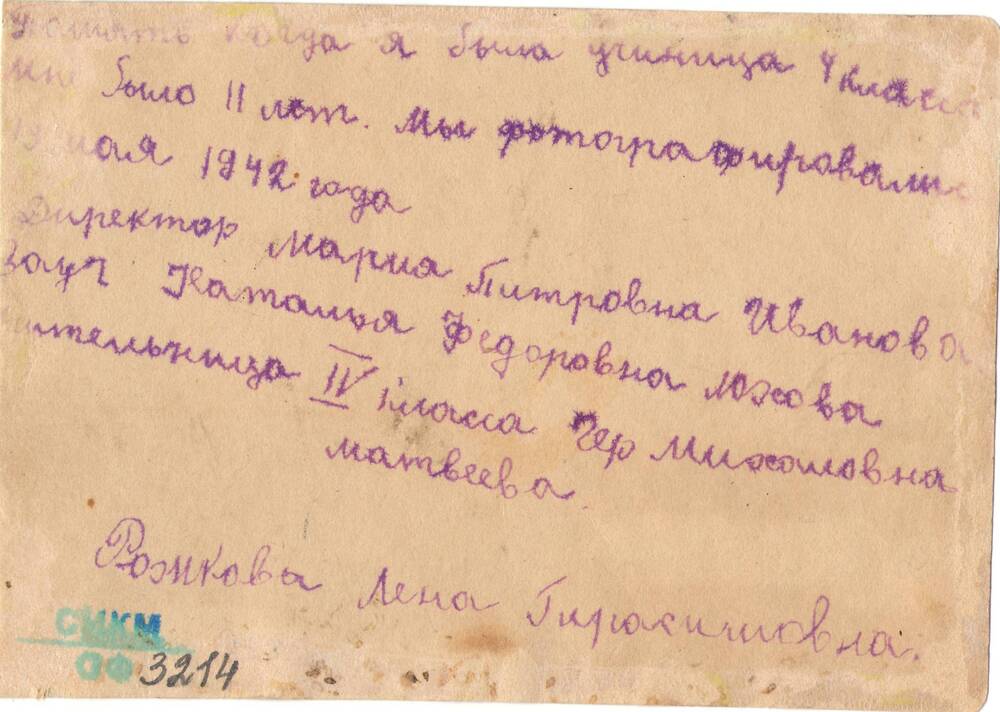 память когда я была учиница 4 класса
мне было 11 лет. Мы фотографировались
мая 1942 года
Директор Мариа Питровна Иванова
Завуч Наталья Федоровна Юхова
учительница IV класса Чер Михаловна
матвеева.
Рожкова Лена Гирасимовна.
СМКМ
ОФ 3214